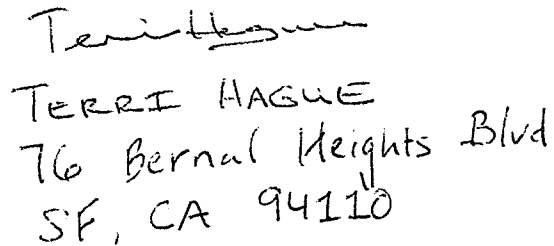 Terri Hague
TERRI HAGUE
76 Bernal Heights Blvd
SF, CA 94110